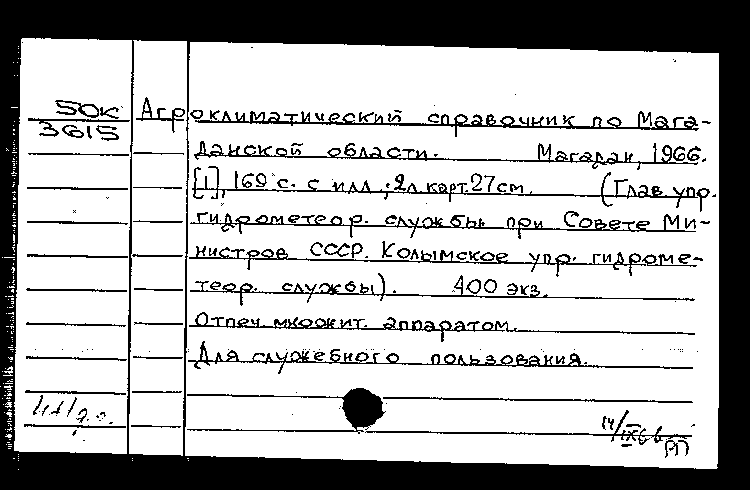 50К Агроклиматический справочник по Мага-
3615
данской области. Магадан, 1966.
[1], 169 с. с илл.; 2л. карт. 27см. (Глав. упр.
гидрометеор. службы при Совете Ми-
нистров СССР. Колымское упр. гидроме-
теор. службы). 400 экз.
Отпеч. множит. аппаратом.
Для служебного пользования.
14/IX 66